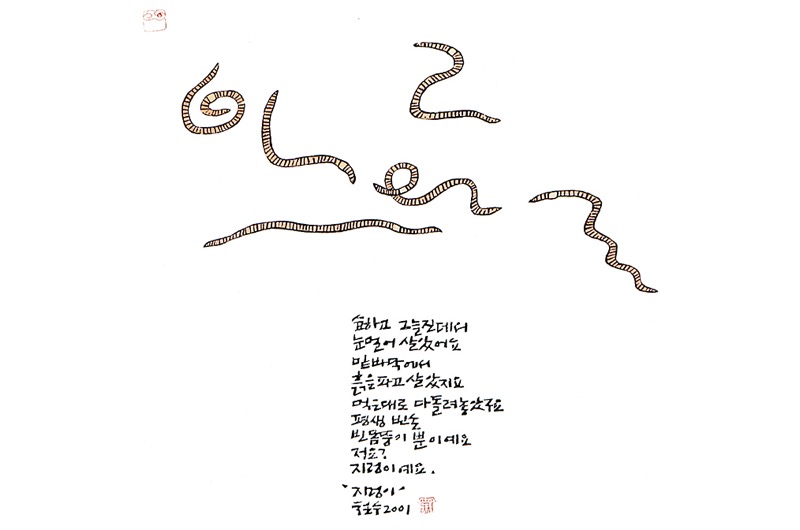 습하고 그늘진데서
눈멀어 살았어요
밑바닥에서
흙은파고 살았지요
먹은대로 다돌려놓았구요
평생 빈손
빈몸뚱이 뿐이예요
저요?
지렁이예요.
"지렁이"
철수 2001